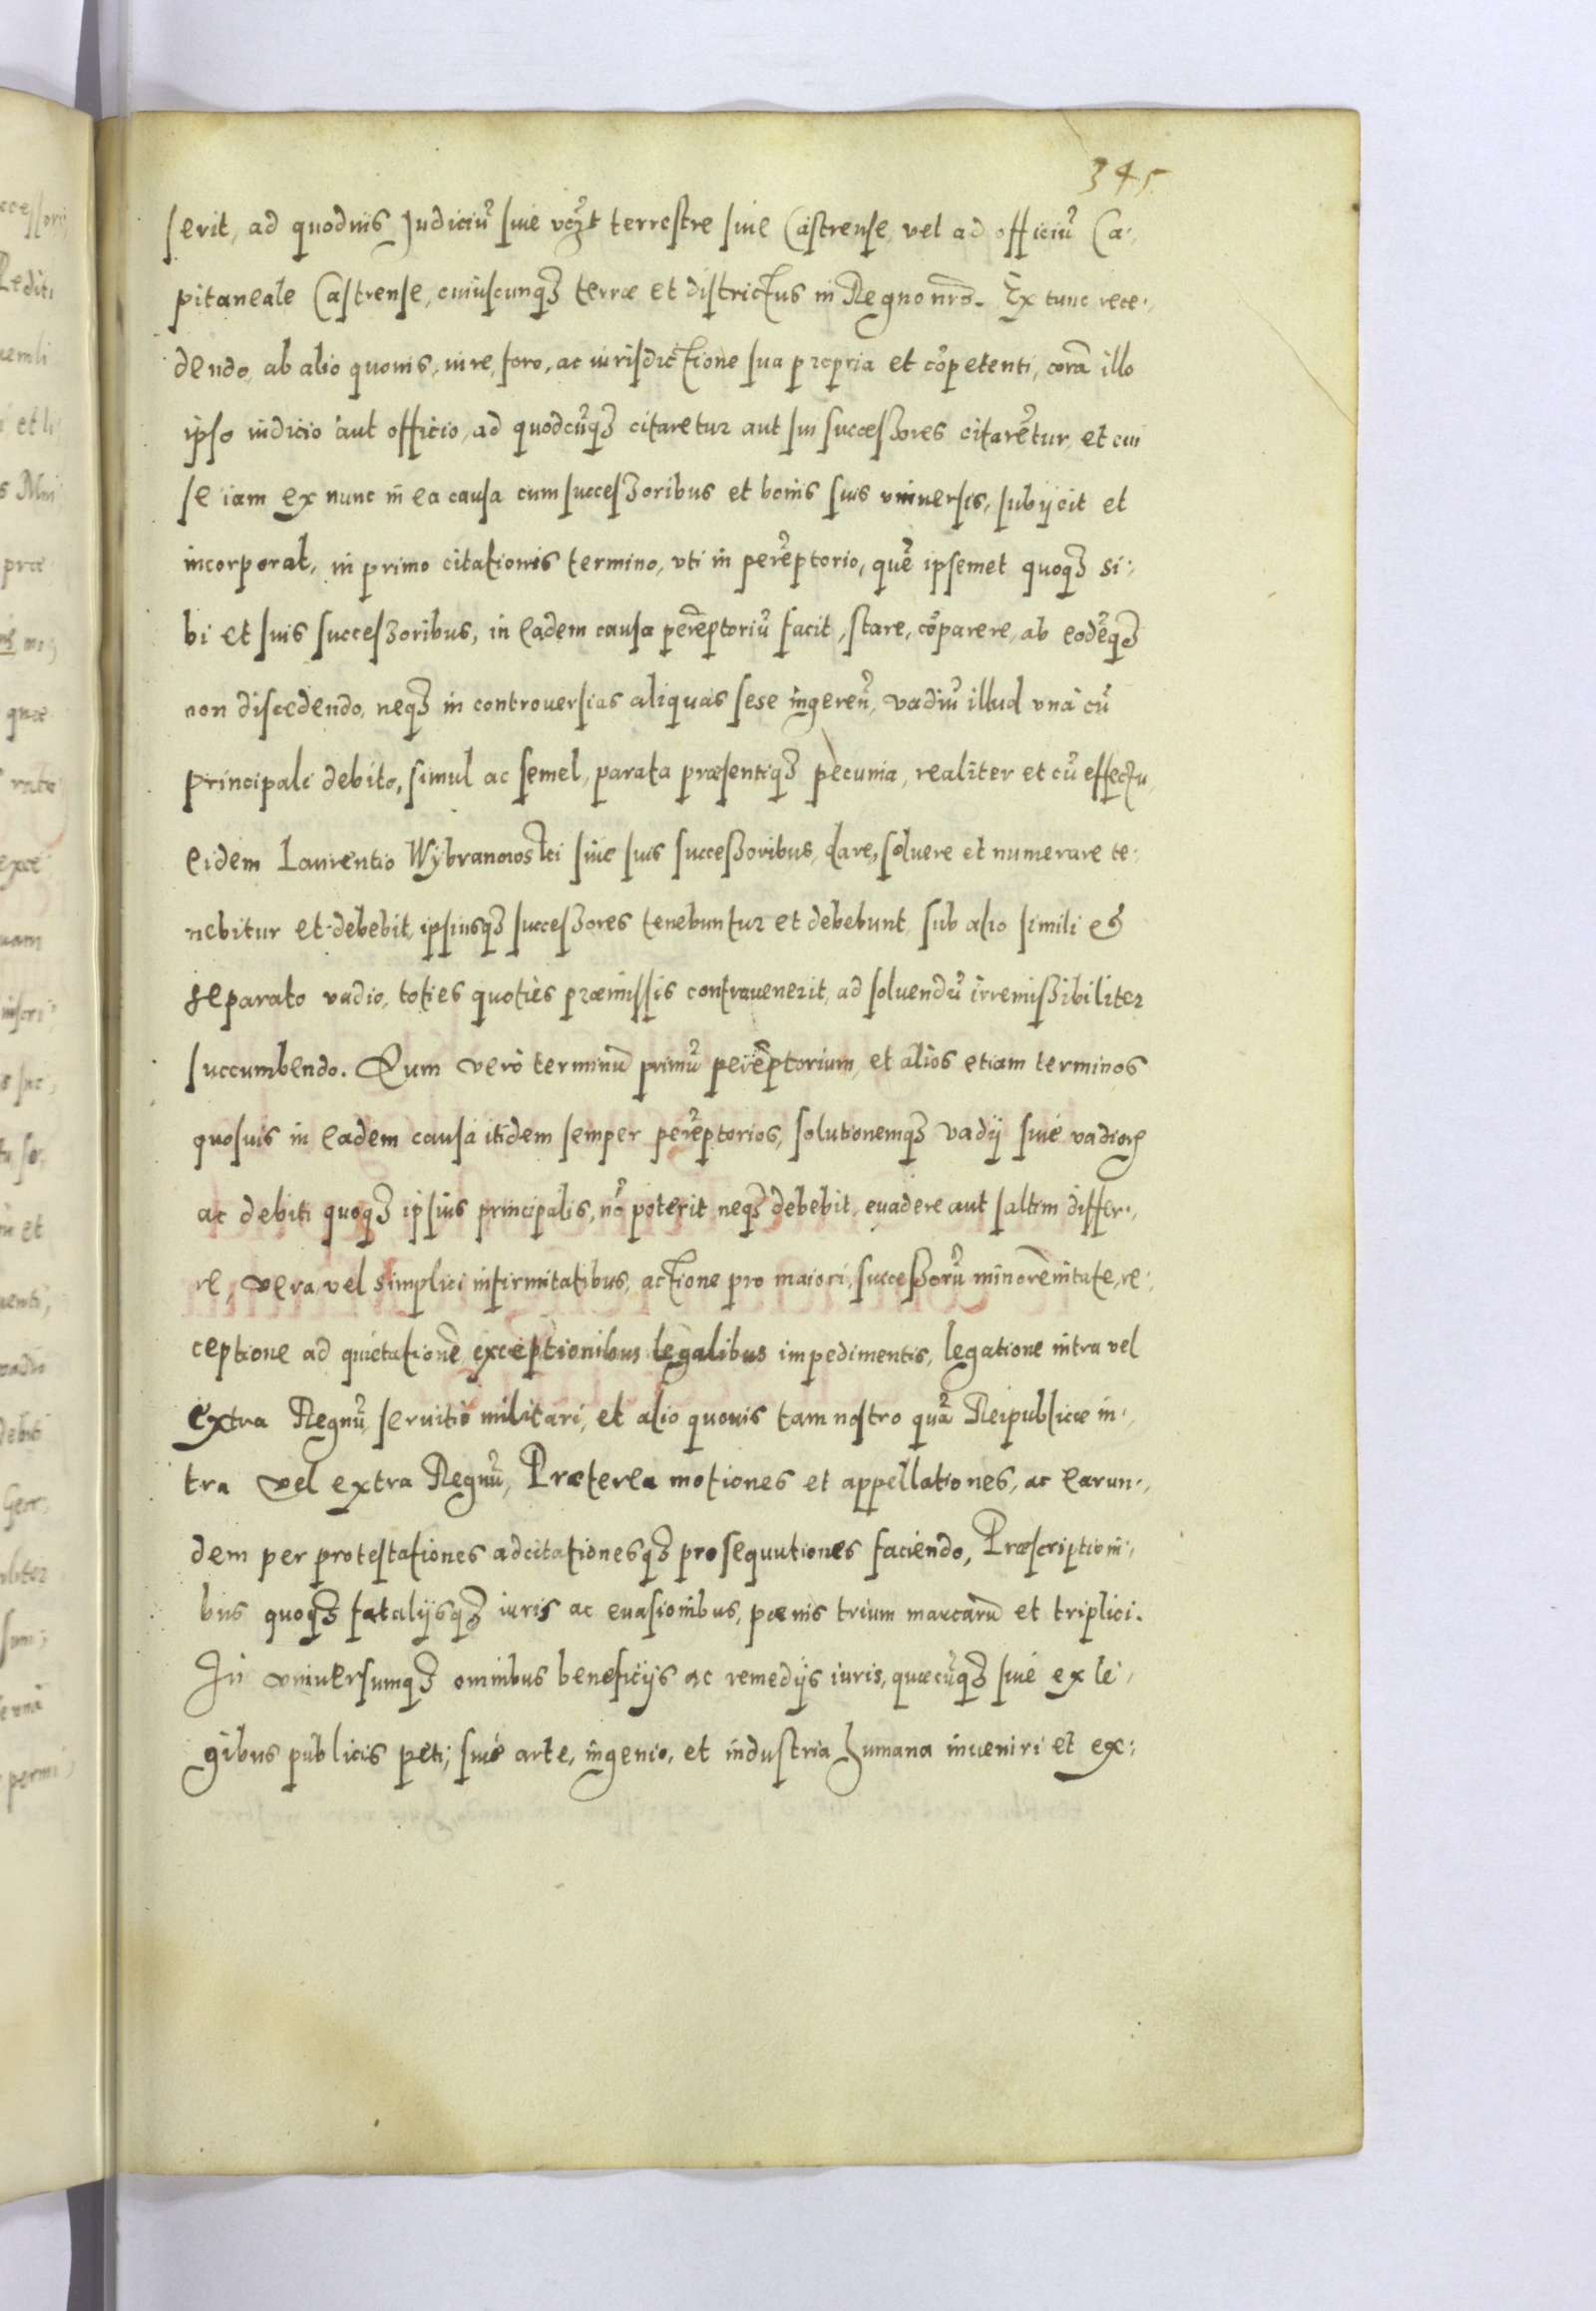 345.
serit, ad quoduis Judiciũ siue vczt terrestre siue Castrense, vel ad officiũ Ca-
pitaneale Castrense, cuiuscunqꝫ terræ et districtus in Regno nrõ. Ex tunc rece-
dendo, ab alio quouis, iure, foro, ac iurisdictione sua propria et cõpetenti, corã illo
ipso iudicio aut officio, ad quodcũqꝫ citaretur aut sui successores citarẽtur, et cui
se iam ex nunc in ea causa cum successoribus et bonis suis vniuersis, subijcit et
incorporat, in primo citationis termino, vti in perẽptorio, quẽ ipsemet quoqꝫ si-
bi et suis successoribus, in eadem causa perẽptoriũ facit, stare, cõparere, ab eodẽqꝫ
non discedendo, neqꝫ in controuersias aliquas sese ingerẽn, vadiũ illud vnà cũ
principali debito, simul ac semel, parata præsentiqꝫ pecunia, realiter et cũ effectu,
eidem Laurentio Wybranowski siue suis successoribus, dare, soluere et numerare te-
nebitur et debebit, ipsiusqꝫ successores tenebuntur et debebunt, sub alio simili et
separato vadio, toties quoties præmissis contrauenerit, ad soluendũ irremissibiliter
succumbendo. Eum vero terminũ primũ perẽmptorium, et alios etiam terminos
quosuis in eadem causa itidem semper perẽptorios, solutionemqꝫ vadij siue vadioꝝ
ac debiti quoqꝫ ipsius principalis, nõ poterit neqꝫ debebit, euadere aut saltim differ-
re, vera vel simplici infirmitatibus, actione pro maiori, successorũ minorẽnitate, re-
ceptione ad quietationẽ exceptionibus legalibus impedimentis, legatione intra vel
extra Regnũ, seruitio militari, et alio quouis tam nostro quã Reipublicæ in-
tra vel extra Regnũ, Præterea motiones et appellationes, ac earun-
dem per protestationes adcitationesqꝫ prosequutiones faciendo, Præscriptioni-
bus quoqꝫ fatalijsqꝫ iuris ac euasionibus, pœnis trium marcarũ et triplici.
In vniuersumqꝫ omnibus beneficijs ac remedijs iuris, quæcũqꝫ siue ex le-
gibus publicis peti, siue arte, ingenio, et industria humana inueniri et ex-